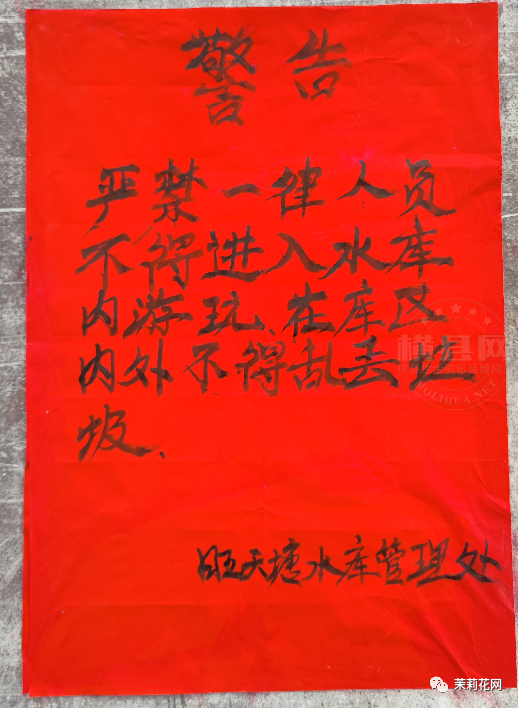 警告
严禁一律人员
不得进入水库
内游玩、在库区
内外不得乱丢垃
圾、
旺天塘水库管理处
横县网
茉莉花网